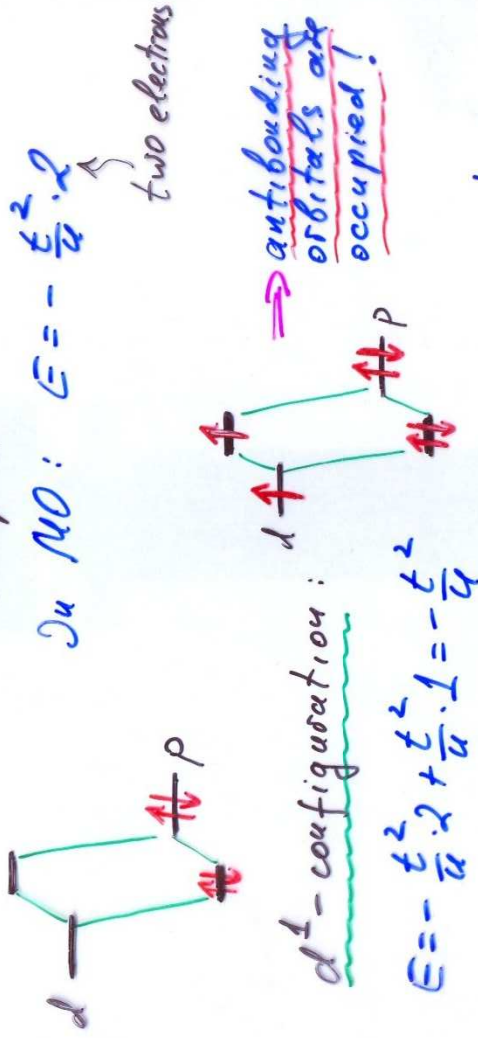 In MO: E = - t²/u · 2
two electrons
d
p
d¹ - configuration :
d
p
⇒ antibonding
orbitals are
occupied!
E = - t²/u · 2 + t²/u · 1 = - t²/u